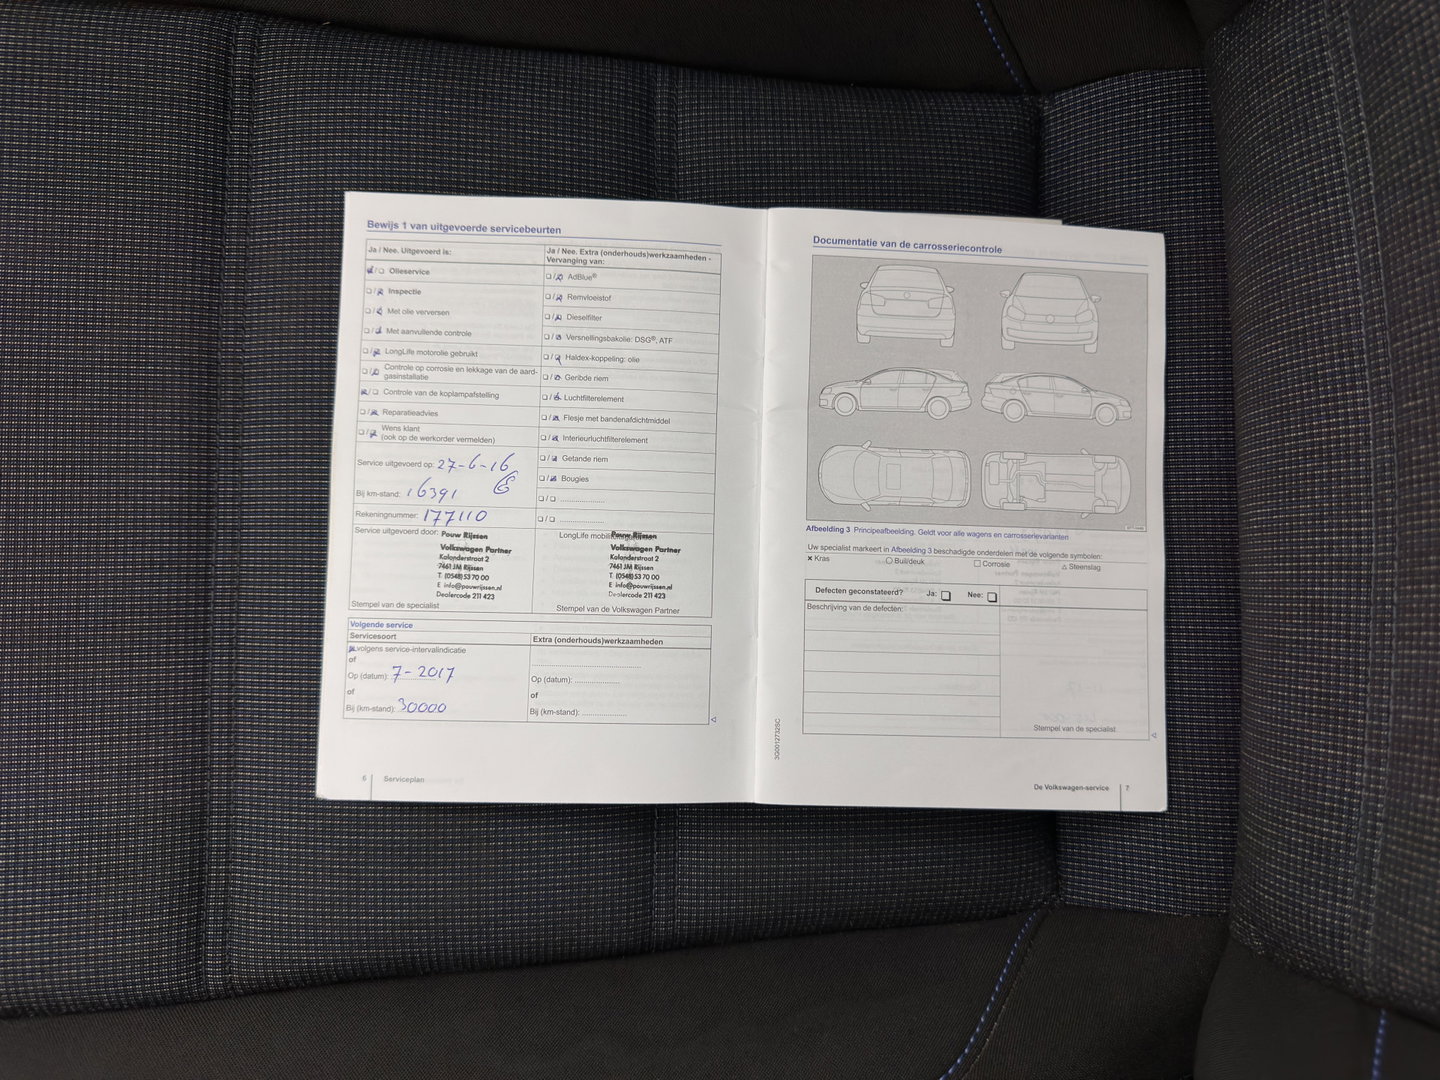 Bewijs 1 van uitgevoerde servicebeurten
Ja / Nee. Uitgevoerd is:
Olieservice
Inspectie
Met olie verversen
Met aanvullende controle
LongLife motorolie gebruikt
Controle op corrosie en lekkage van de aard-
gasinstallatie
Controle van de koplampafstelling
Reparatieadvies
Wens klant
(ook op de werkorder vermelden)
Service uitgevoerd op: 27-6-16
Bij km-stand: 16391
Rekeningnummer: 177110
Service uitgevoerd door: Pouw Rijssen
Volkswagen Partner
Kalanderstraat 2
7461 JM Rijssen
T (0548) 53 70 00
E info@pouwrijssen.nl
Dealercode 211 423
Stempel van de specialist
Ja / Nee. Extra (onderhouds)werkzaamheden -
Vervanging van:
AdBlue®
Remvloeistof
Dieselfilter
Versnellingsbakolie: DSG®, ATF
Haldex-koppeling: olie
Geribde riem
Luchtfilterelement
Flesje met bandenafdichtmiddel
Interieurluchtfilterelement
Getande riem
Bougies
LongLife
Pouw Rijssen
Volkswagen Partner
Kalanderstraat 2
7461 JM Rijssen
T (0548) 53 70 00
E info@pouwrijssen.nl
Dealercode 211 423
Stempel van de Volkswagen Partner
Volgende service
Servicesoort
volgens service-intervalindicatie
of
Op (datum): 7-2017
of
Bij (km-stand): 30000
Extra (onderhouds)werkzaamheden
Op (datum):
of
Bij (km-stand):
6 Serviceplan
Documentatie van de carrosseriecontrole
Afbeelding 3 Principeafbeelding. Geldt voor alle wagens en carrosserievarianten
Uw specialist markeert in Afbeelding 3 beschadigde onderdelen met de volgende symbolen:
Kras
Buil/deuk
Corrosie
Steenslag
Defecten geconstateerd? Ja: Nee:
Beschrijving van de defecten:
Stempel van de specialist
3G0012732SC
De Volkswagen-service 7